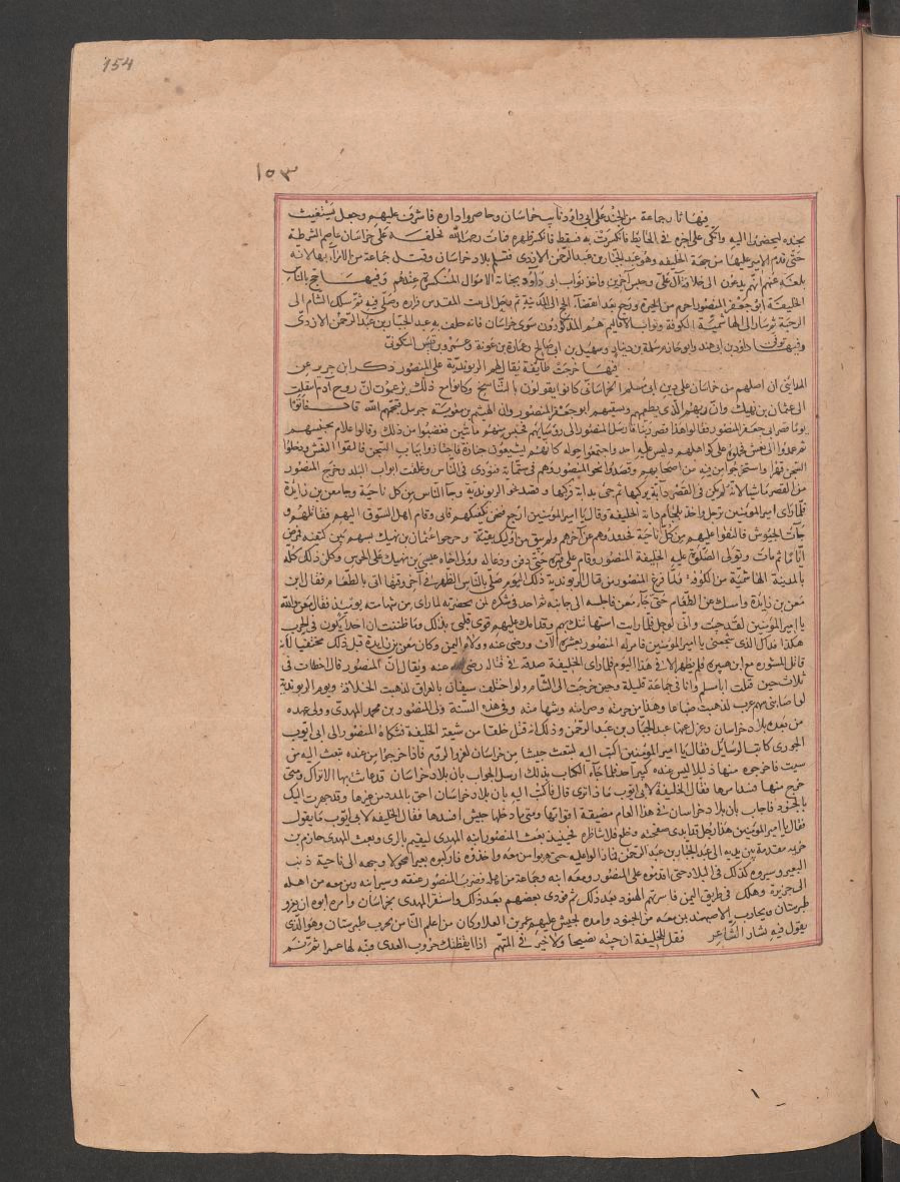 154
١٥٣
فيها ثار جماعة من الجند على ابي داود نايب خراسان وحاصروا داره فاشرف عليهم وجعل يستغيث
بجنده ليحضروا اليه واتكى على اجره في الحايط فانكسرت به فسقط فانكسر ظهره فمات رحمه الله فخلفه على خراسان عاصم الشرطة
حتى قدم الامير عليها من جهة الخليفة وهو عبد الجبار بن عبد الرحمن الازدي فتسلم بلاد خراسان وقتل جماعة من الامراء بها لانه
بلغه عنهم انهم يدعون الى خلافة آل علي وحبس آخرين واخذ نواب ابي داود بجباية الاموال المنكسرة عندهم وفيها حج بالناس
الخليفة ابو جعفر المنصور احرم من الحيرة ورجع بعد انقضاء الحج الى المدينة ثم رحل الى بيت المقدس فزاره وصلى فيه ثم سلك الشام الى
الرحبة ثم سار الى الهاشمية الكوفة ونواب الاقاليم هم المذكورون سوى خراسان فانه خلف به عبد الجبار بن عبد الرحمن الازدي
وفيها توفي داود بن ابي هند وابو حازم سلمة بن دينار وسهيل بن ابي صالح وعمارة بن غزية وعمرو بن قيس السكوني
فيها خرجت طايفة يقال لهم الريوندية على المنصور ذكر ابن جرير عن
المدايني ان اصلهم من خراسان على دين ابي مسلم الخراساني كانوا يقولون بالتناسخ وكانوا مع ذلك يزعمون ان روح آدم انتقلت
الى عثمان بن نهيك وان ربهم الذي يطعمهم ويسقيهم ابو جعفر المنصور وان الهيثم بن معوية جبريل قبحهم الله فاتوا
يوما قصر ابي جعفر المنصور فقالوا هذا قصر ربنا فارسل المنصور الى رؤسايهم فحبس منهم مأتين فغضبوا من ذلك وقالوا علام يحبسهم
ثم عمدوا الى نعش فحملوه على كواهلهم وليس عليه احد واجتمعوا حوله كانهم يشيعون جنازة فاجتازوا بباب السجن فالقوا النعش ودخلوا
السجن قهرا واستخرجوا من فيه من اصحابهم وقصدوا نحو المنصور وهم في ستماية فنودي في الناس وغلقت ابواب البلد وخرج المنصور
من القصر ماشيا لانه لم يكن في القصر دابة يركبها ثم جئ بدابة فركبها وقصد نحو الريوندية وجآ الناس من كل ناحية وجا معن بن زايدة
فلما راى امير المؤمنين ترجل واخذ بلجام دابة الخليفة وقال يا امير المؤمنين ارجع نحن نكفيكهم فابى وقام اهل السوق اليهم فقاتلوهم و
جآت الجيوش فالتفوا عليهم من كل ناحية فحصدوهم عن آخرهم ولم يبق من اوليك بقية وجرحوا عثمان بن نهيك بسهم بين كتفيه فمرض
اياما ثم مات وتولى الصلوة عليه الخليفة المنصور وقام على قبره حتى دفن ودعا له وولى اخاه عيسى بن نهيك على الحرس وكان ذلك كله
بالمدينة الهاشمية من الكوفة ولما فرغ المنصور من قتال الريوندية ذلك اليوم صلى بالناس الظهر في آخر وقتها اتى بالطعام فقال اين
معن بن زايدة وامسك عن الطعام حتى جآء معن فاجلسه الى جانبه ثم اخذ في شكره لمن بحضرته لما راى من شهامته يومئذ فقال معن والله
يا امير المؤمنين لقد جئت واني لوجل فلما رايت استهانتك بهم واقدامك عليهم قوى قلبي بذلك وما ظننت ان احدا يكون في الحرب
هكذا فذاك الذي شجعني يا امير المؤمنين فامر له المنصور بعشرة آلاف ورضي عنه وولاه اليمن وكان معن بن زايدة قبل ذلك مختفيا لانه
قاتل المسودة مع ابن هبيرة فلم يظهر الا في هذا اليوم فلما راى الخليفة صدقه في قتاله رضي عنه ويقال ان المنصور قال اخطات في
ثلاث حين قتلت ابا مسلم وانا في جماعة قليلة وحين خرجت الى الشام ولو اختلف سيفان بالعراق لذهبت الخلافة ويوم الريوندية
لو اصابني سهم غرب لذهبت ضياعا وهذا من حزمه وصرامته وشهامته وفي هذه السنة ولى المنصور بن محمد المهدي وولى عهده
من بعده بلاد خراسان وعزل عنها عبد الجبار بن عبد الرحمن وذلك انه قتل خلقا من شيعة الخليفة فشكاه المنصور الى ابي ايوب
الخوزي كاتب الرسايل فقال يا امير المؤمنين اكتب اليه ليبعث جيشا من خراسان لغزو الروم فاذا خرجوا من عنده بعثت اليه من
شيت فاخرجوه منها ذليلا ليس عنده كبير احد فلما جآء الكتاب بذلك ارسل الجواب بان بلاد خراسان قد عاث بها الاتراك ومتى
خرج منها فسد امرها فقال الخليفة لابي ايوب ماذا ترى قال فاكتب اليه بان بلاد خراسان احق بالمدد من غيرها وقد جهزت اليك
بالجنود فاجاب بان بلاد خراسان في هذا العام مضيقة اقواتها ومتى دخلها جيش افسدها فقال الخليفة لابي ايوب ما يقول
فقال يا امير المؤمنين هذا رجل قد ابدى صفحته وخلع فلا تناظره فحينيذ بعث المنصور ابنه المهدي ليقيم بالري وبعث المهدي خازم بن
خزيمة مقدمة بين يديه الى عبد الجبار بن عبد الرحمن فما زالوا عليه حتى هرب من معه واخذوه فاركبوه بعيرا محولا وجهه الى ناحية ذنب
البعير وسيروه كذلك في البلاد حتى اقدموه على المنصور ومعه ابنه وجماعة من اهله فضرب المنصور عنقه وسير ابنه ومن معه من اهله
الى جزيرة وهلك في طريق اليمن فاسرتهم الهنود بعد ذلك ثم فودي بعضهم بعد ذلك واستقر المهدي بخراسان وامره ابوه ان يغزو
طبرستان ويحارب الاصبهبذ بمن معه من الجنود وامده بجيش عليهم عمر بن العلا وكان من اعلم الناس بحرب طبرستان وهو الذي
يقول فيه بشار الشاعر فقل للخليفة ان جيته نصيحا ولا خير في المتهم اذا ايقظتك حروب العدى فنبه لها عمرا ثم نم